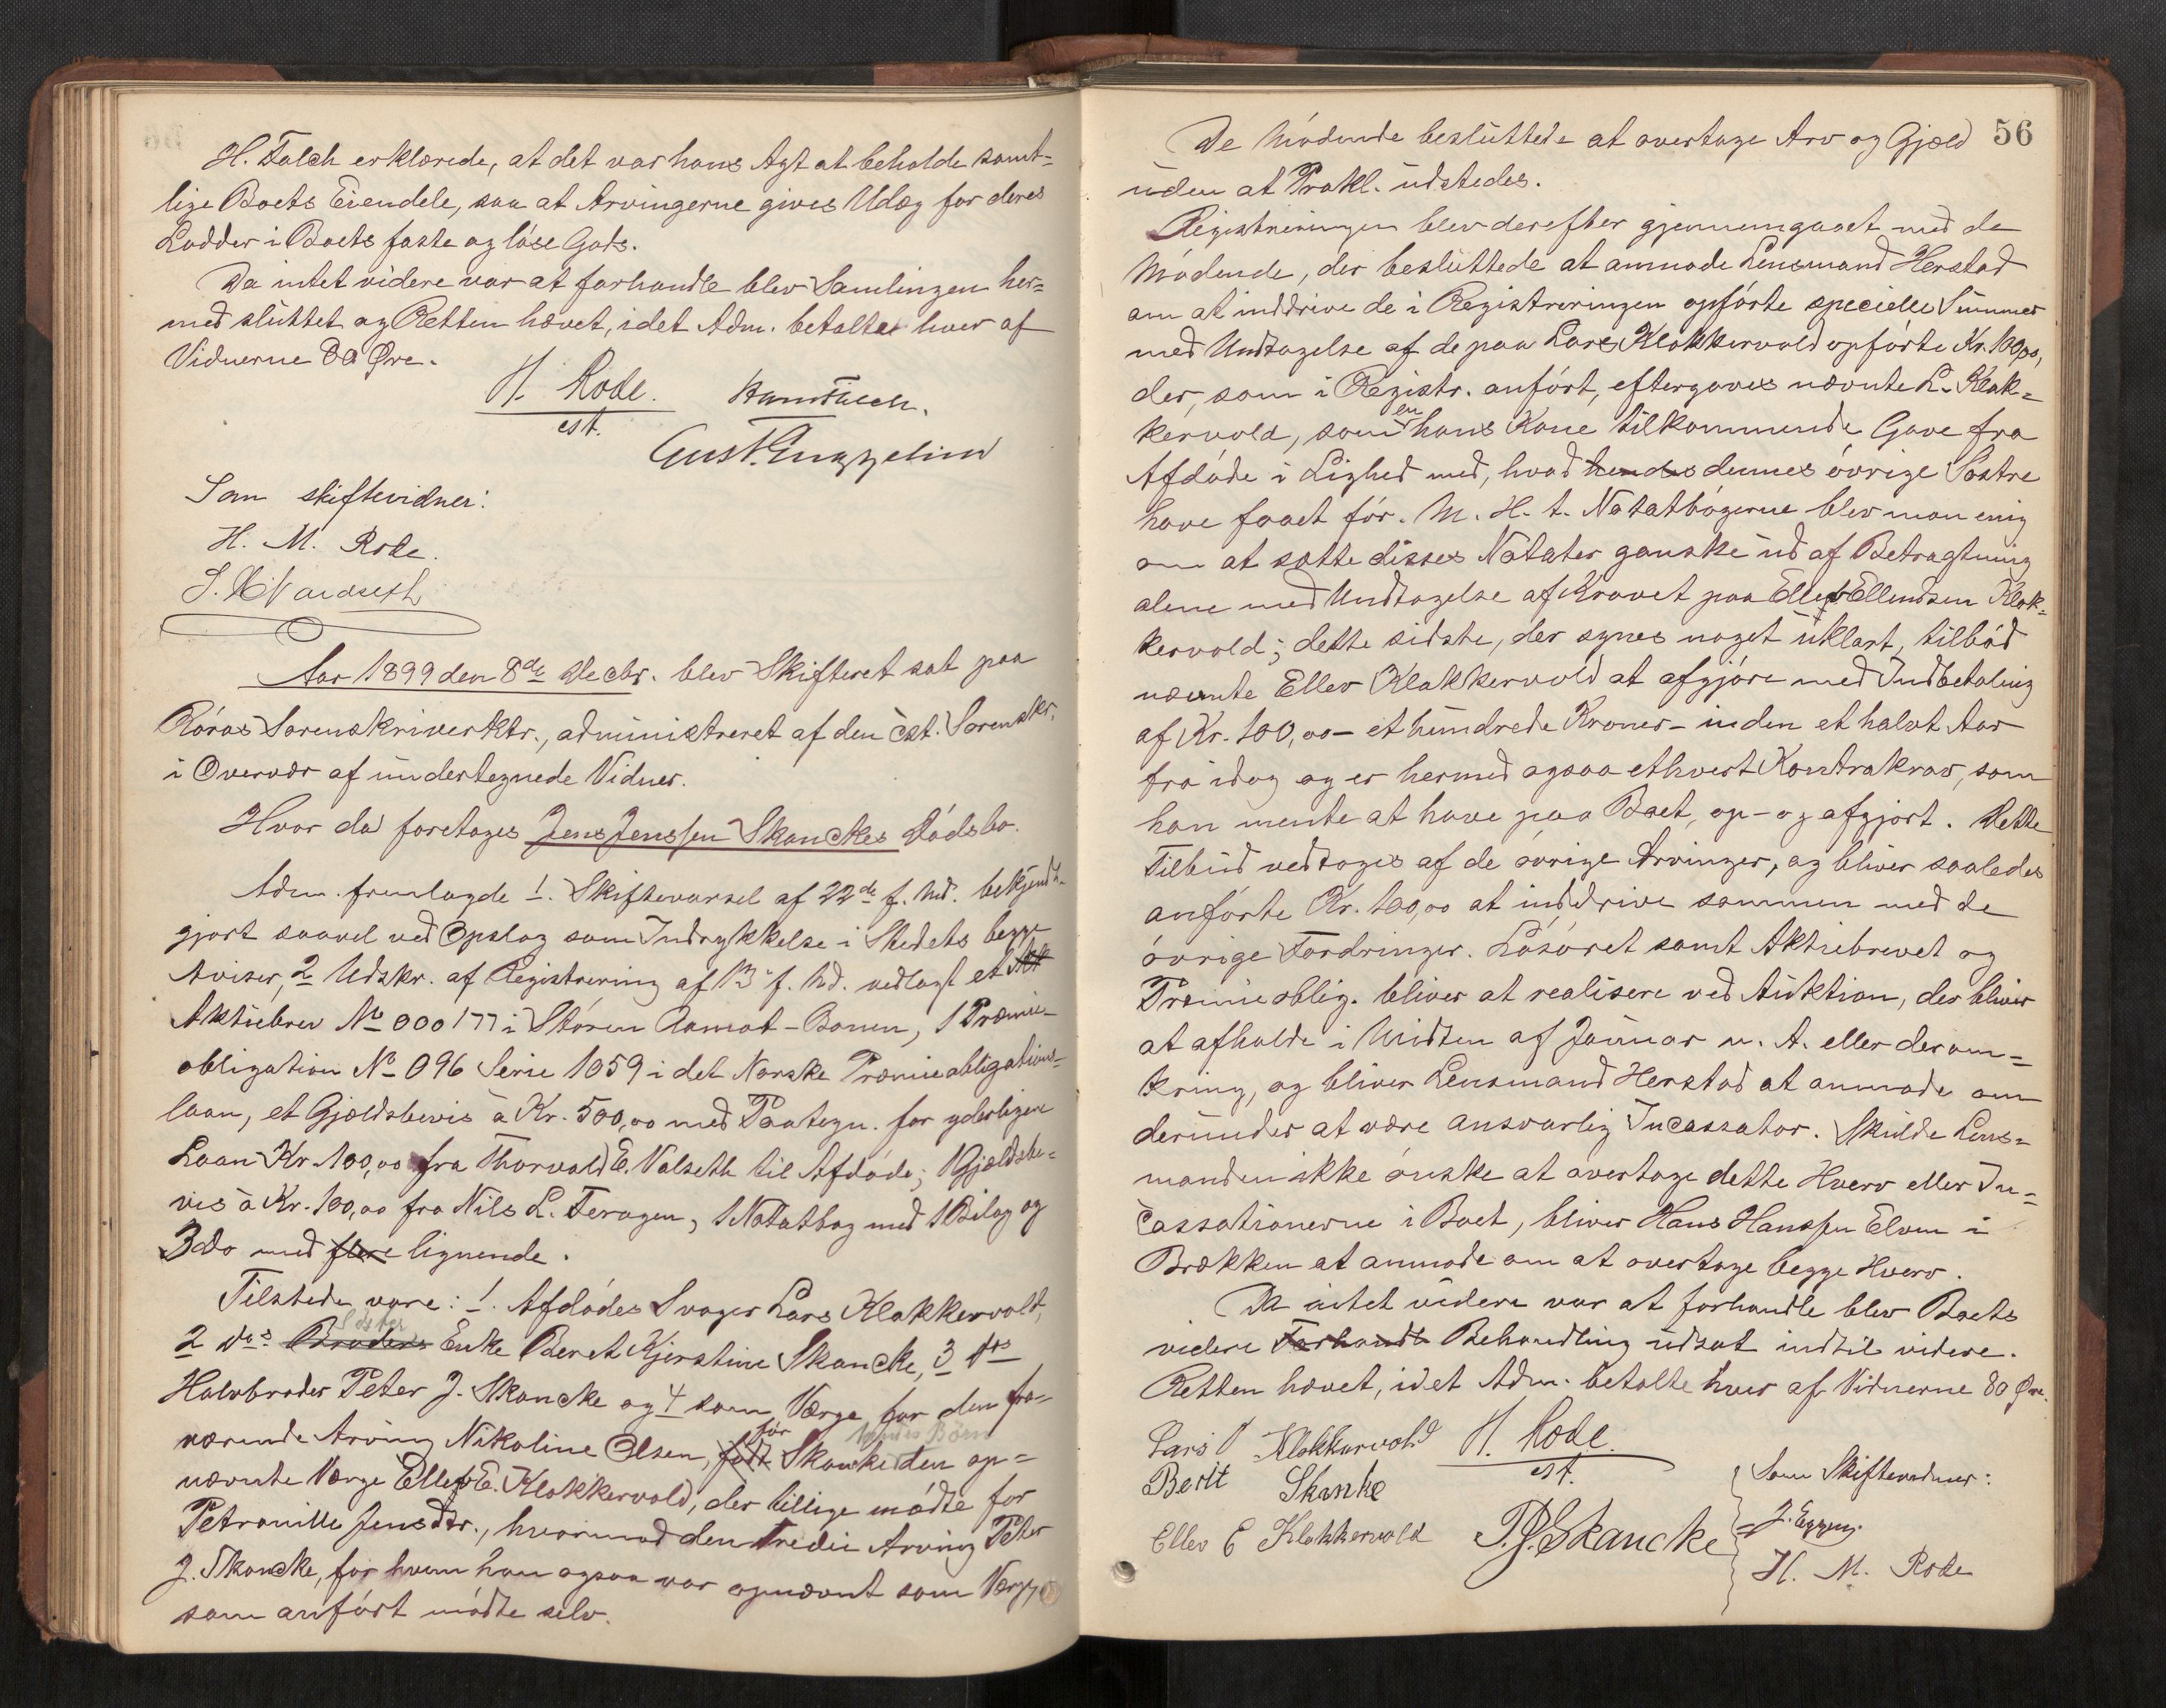 H. Falch erklærede, at det var hans Agt at beholde samt=
lige Boets Eiendele, saa at Arvingerne gives Udlæg for deres
Lodder i Boets faste og løse Gods.
Da intet videre var at forhandle blev Samlingen her=
med sluttet og Retten hævet, idet Adm. betalte hver af
Vidnerne 80 Øre.
H. Rode.
cst.
Som skiftevidner:
H. M. Rode.
Aar 1899 den 8de Decbr. blev Skifteret sat paa
Røros Sorenskriverktr., administreret af den cst. Sorenskr.
i Overvær af undertegnede Vidner.
Hvor da foretoges Jens Jenssen Skanckes Dødsbo.
Adm. fremlagde 1. Skiftevarsel af 22de f. Md. bekjendt-
gjort saavel ved Opslag som Indrykkelse i Stedets begge
Aviser, 2 Udskr. af Registrering af 13 f. Md. vedlagt et Akt
Aktiebrev No 000177 i Støren Aamot-Banen, 1 Præmie-
obligation No 096 Serie 1059 i det Norske Præmieobligations-
laan, et Gjældsbevis à Kr. 500,00 med Paategn. for yderligere
Laan Kr 100,00 fra Thorvald E. Valseth til Afdøde; 1 Gjældsbe=
vis à Kr. 100,00 fra Nils L. Feragen, 1 Notatbog med 1 Bilag og
3 do med flere lignende.
Tilstede vare: 1. Afdødes Svoger Lars Klokkervold,
2 Dos Broders Søster Enke Beret Kjerstine Skancke, 3 Dos
Halvbroder Peter J. Skancke og 4 som Værge for den fra-
værende Arving Nikoline Olsen, født før Skanke hendes Børn den op=
nævnte Værge Ellev E. Klokkervold, der tillige mødte for
Petronille Jensdtr., hvorimod den tredie Arving Peter
J. Skancke, for hvem han ogsaa var opnævnt som Værge
som anført mødte selv.
56
De Mødende besluttede at overtage Arv og Gjæld
uden at Prokl. udstedes.
Registreringen blev derefter gjennemgaaet med de
Mødende, der besluttede at anmode Lensmand Herstad
om at inddrive de i Registreringen opførte specielle Summer
med Undtagelse af de paa Lars Klokkervold opførte Kr. 100,00,
der, som i Registr. anført, eftergaves nævnte L. Klok=
kervold, som en hans Kone tilkommende Gave fra
Afdøde i Lighed med, hvad hendes dennes øvrige Søstre
have faaet før. M. H. t. Notatbøgerne blev man enig
om at sætte disses Notater ganske ud af Betragtning
alene med Undtagelse af Kravet paa Ellev Ellendsen Klok=
kervold; dette sidste, der synes noget uklart, tilbød
nævnte Ellev Klokkervold at afgjøre med Indbetaling
af Kr. 100,00 - et hundrede Kroner - inden et halvt Aar
fra idag og er hermed ogsaa ethvert Kontrakrav, som
han mente at have paa Boet, op- og afgjort. Dette
Tilbud vedtoges af de øvrige Arvinger, og bliver saaledes
anførte Kr. 100,00 at inddrive sammen med de
øvrige Fordringer. Løsøret samt Aktiebrevet og
Præmieoblig. bliver at realisere ved Auktion, der bliver
at afholde i Midten af Januar n. A. eller derom=
kring, og bliver Lensmand Herstad at anmode om
derunder at være ansvarlig Incassator. Skulde Lens=
manden ikke ønske at overtage dette Hverv eller In=
cassationerne i Boet, bliver Hans Hanssen Elven i
Brækken at anmode om at overtage begge Hverv.
Da intet videre var at forhandle blev Boets
videre Forhandl Behandling udsat indtil videre.
Retten hævet, idet Adm. betalte hver af Vidnerne 80 Øre.
Lars Klokkervold H. Rode.
Berit Skanke cst. Som Skiftevidner:
Ellev E Klokkervold P. J. Skancke J. Eggen.
H. M. Rode